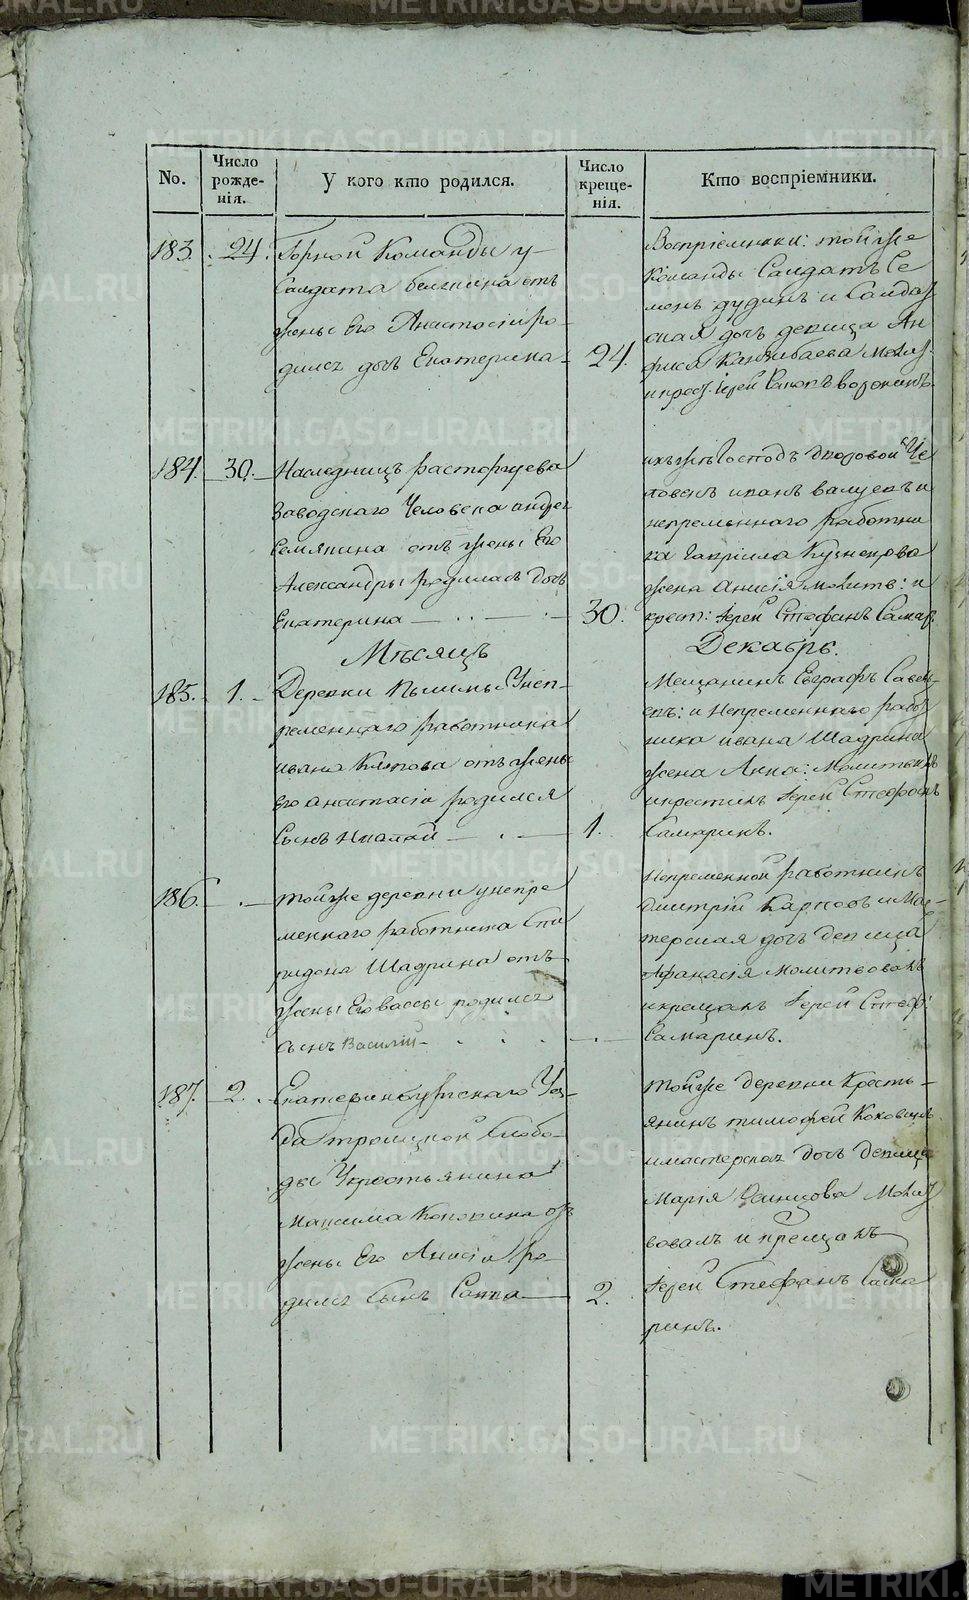 METRIKI.GASO-URAL.RU
No.
Число рожде-нія.
У кого кто родился.
Число креще-нія.
Кто воспріемники.
183.
24.
Горной Команды у
Солдата отъ
жены Его Анастасіи ро-
дилсѧ дочь Екатерина
24.
Воспріемники: той же
Команды Солдатъ Се
менъ дудинъ и Солдат
ская дочь девица Ан
фиса молит.
и крест. Іерей воронинъ
184.
30.
Наследницъ расторгуева
Заводскаго Человека андрея
Семянина отъ жены Его
Александры родилась дочь
Екатерина
30.
ихъ же Господъ дворовой Че
ловекъ иванъ валуевъ и
непременнаго работни
ка Гавріила Кузнецова
жена Анисія молитв: и
крест: Іерей Стефанъ Самар.
Мѣсяцъ
Декабрь.
185.
1.
Деревни Пышмы У неп-
ременнаго работника
ивана отъ жены
Его анастасіи родился
Сынъ Николай
1.
Мещанинъ Евграфъ Савен
евъ: и Непременнаго работ
ника ивана Шадрина
жена Анна: Молитвилъ
и крестилъ Іерей Стефанъ
Самаринъ.
186.
Той же деревни у непре
меннаго работника Спи
ридона Шадрина отъ
жены Его вассы родилсѧ
сынъ Василій
Непременной работникъ
Дмитрій Карповъ и Мас-
терская дочь девица
Афанасія Молитвовалъ
и крещалъ Іерей Стеф:
Самаринъ.
187.
2.
Екатеринбургскаго Уез-
да троицкой Слобо-
ды У крестьянина
Максима Коковина отъ
жены Его Анисіи ро-
дилсѧ Сынъ Савва
2.
Той же деревни Кресть-
янинъ тимофей Коковинъ
и мастерская дочь девица
Марія Молит
вовалъ и крещалъ
Іерей Стефанъ Сама
ринъ.